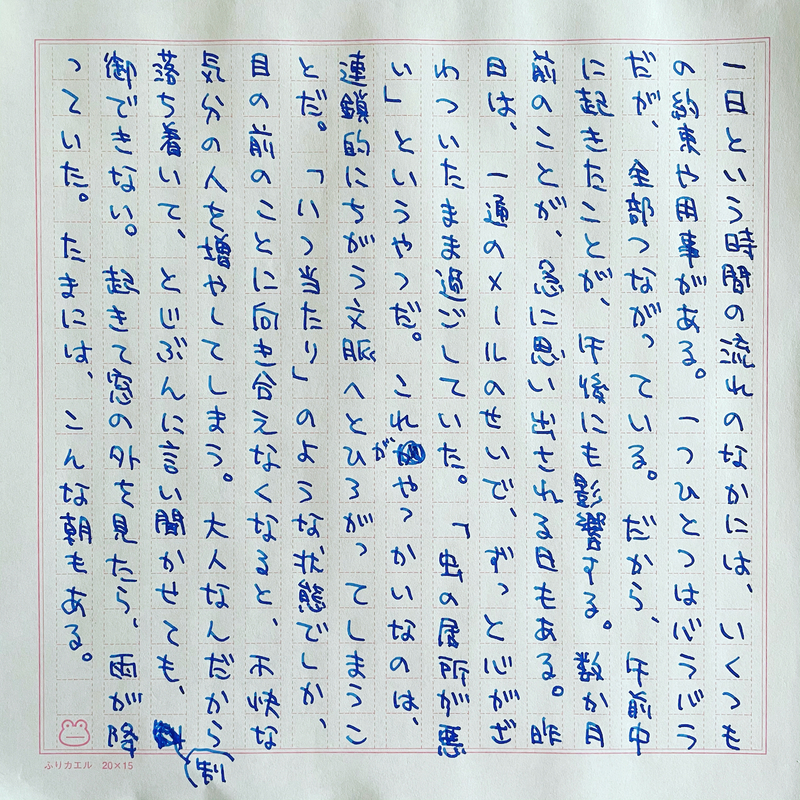 一日という時間の流れのなかには、いくつも
の約束や用事がある。一つひとつはバラバラ
だが、全部つながっている。だから、午前中
に起きたことが、午後にも影響する。数か月
前のことが、急に思い出される日もある。昨
日は、一通のメールのせいで、ずっと心がざ
わついたまま過ごしていた。「虫の居所が悪
い」というやつだ。これがやっかいなのは、
連鎖的にちがう文脈へとひろがってしまうこ
とだ。「いつ当たり」のような状態でしか、
目の前のことに向き合えなくなると、不快な
気分の人を増やしてしまう。大人なんだから
落ち着いて、とじぶんに言い聞かせても、制
御できない。起きて窓の外を見たら、雨が降
っていた。たまには、こんな朝もある。
ふりカエル 20×15